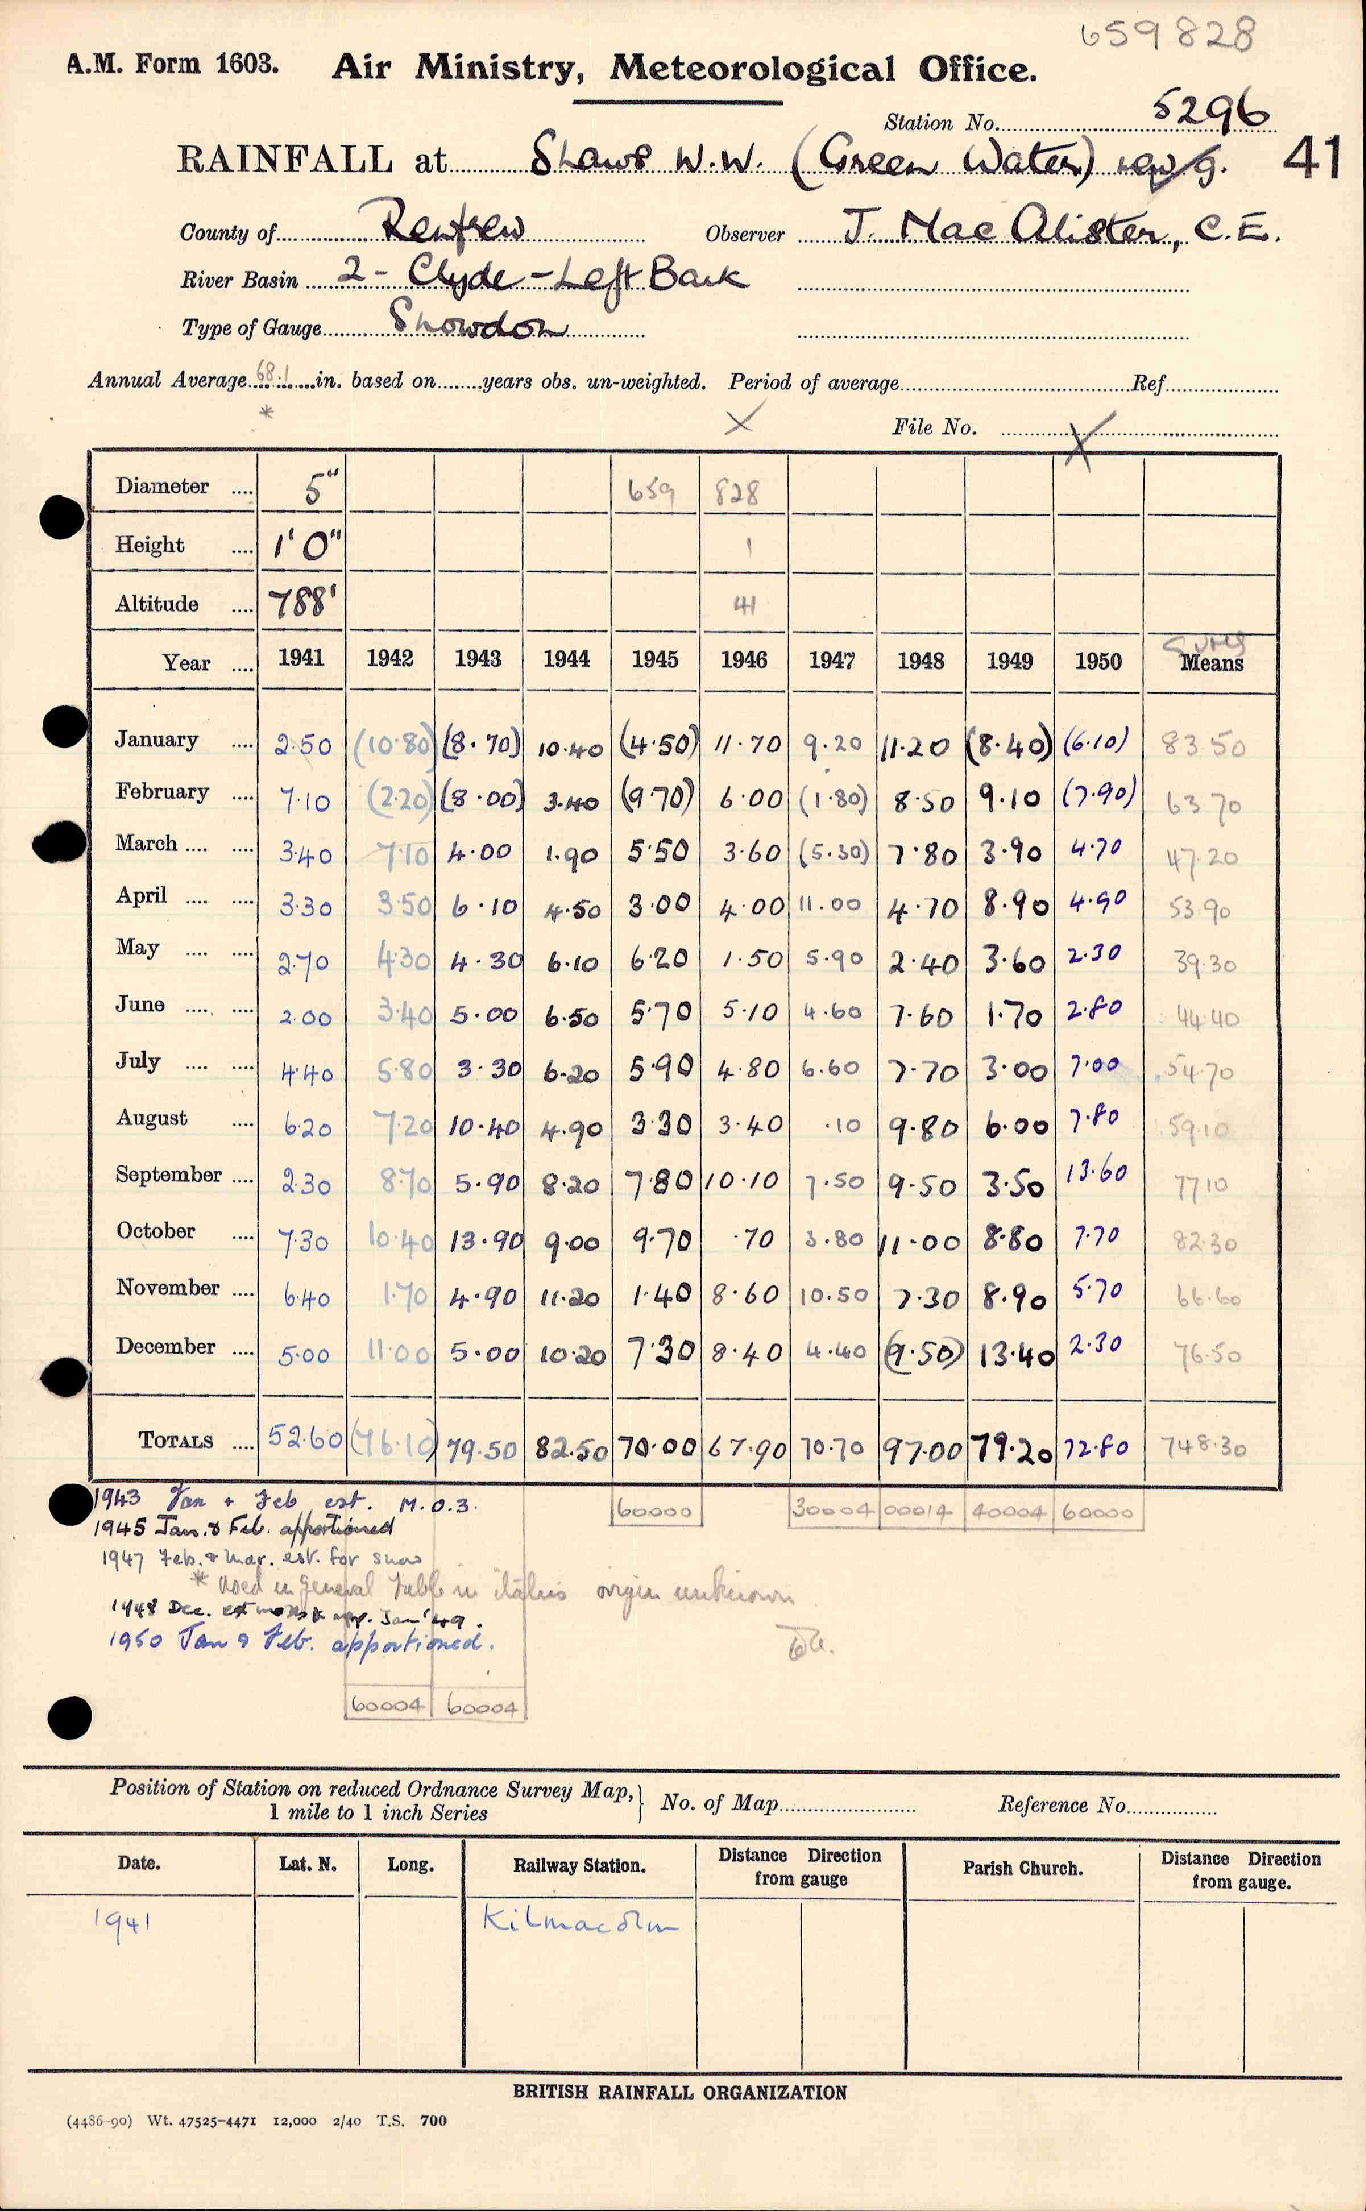 659828
A.M. Form 1603. Air Ministry, Meteorological Office.
Station No. 5296
RAINFALL at Shaws W.W. (Green Water) new g. 41
County of Renfrew Observer J. Mac Alister, C.E.
River Basin 2 - Clyde - Left Bank
Type of Gauge Snowdon
Annual Average 68.1 in. based on years obs. un-weighted. Period of average Ref
* X
File No. X
Diameter .... 5" 659 828
Height .... 1' 0" 1
Altitude .... 788' 41
Sums
Year .... 1941 1942 1943 1944 1945 1946 1947 1948 1949 1950 Means
January .... 2.50 (10.80) (8.70) 10.40 (4.50) 11.70 9.20 11.20 (8.40) (6.10) 83.50
February .... 7.10 (2.20) (8.00) 3.40 (9.70) 6.00 (1.80) 8.50 9.10 (7.90) 63.70
March .... .... 3.40 7.10 4.00 1.90 5.50 3.60 (5.30) 7.80 3.90 4.70 47.20
April .... .... 3.30 3.50 6.10 4.50 3.00 4.00 11.00 4.70 8.90 4.90 53.90
May .... .... 2.70 4.30 4.30 6.10 6.20 1.50 5.90 2.40 3.60 2.30 39.30
June .... .... 2.00 3.40 5.00 6.50 5.70 5.10 4.60 7.60 1.70 2.80 44.40
July .... .... 4.40 5.80 3.30 6.20 5.90 4.80 6.60 7.70 3.00 7.00 54.70
August .... 6.20 7.20 10.40 4.90 3.30 3.40 .10 9.80 6.00 7.80 59.10
September .... 2.30 8.70 5.90 8.20 7.80 10.10 7.50 9.50 3.50 13.60 77.10
October .... 7.30 10.40 13.90 9.00 9.70 .70 3.80 11.00 8.80 7.70 82.30
November .... 6.40 1.70 4.90 11.20 1.40 8.60 10.50 7.30 8.90 5.70 66.60
December .... 5.00 11.00 5.00 10.20 7.30 8.40 4.40 (9.50) 13.40 2.30 76.50
TOTALS .... 52.60 (76.10) 79.50 82.50 70.00 67.90 70.70 97.00 79.20 72.80 748.30
60000 30004 00014 40004 60000
1943 Jan + Feb est. M.O.3.
1945 Jan. & Feb. apportioned
1947 Feb. & Mar. est. for snow
* Used in General Table in italics origin unknown
1948 Dec. Jan '49.
1950 Jan & Feb. apportioned.
60004 60004
Position of Station on reduced Ordnance Survey Map,
1 mile to 1 inch Series } No. of Map Reference No.
Date. Lat. N. Long. Railway Station. Distance Direction from gauge Parish Church. Distance Direction from gauge.
1941 Kilmacolm
BRITISH RAINFALL ORGANIZATION
(4486-90) Wt. 47525-4471 12,000 2/40 T.S. 700